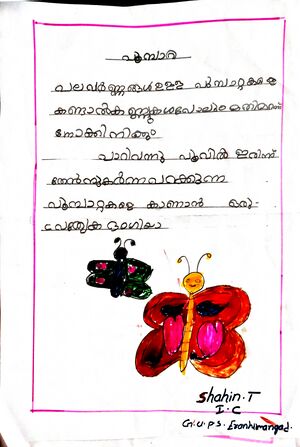 പൂമ്പാറ്റ
പലവർണ്ണങ്ങൾ ഉള്ള പൂമ്പാറ്റകളെ
കണ്ടാൽ കണ്ണുകൾപോലും മതിമറന്ന്
നോക്കി നിക്കും
പാറിവന്നു പൂവിൽ ഇരുന്ന്
തേൻനുകർന്നു പറക്കുന്ന
പൂമ്പാറ്റകളെ കാണാൻ ഒരു
പ്രത്യേക ഭംഗിയാ
Shahin.T
I.C
G.U.P.S. Evankumangad.